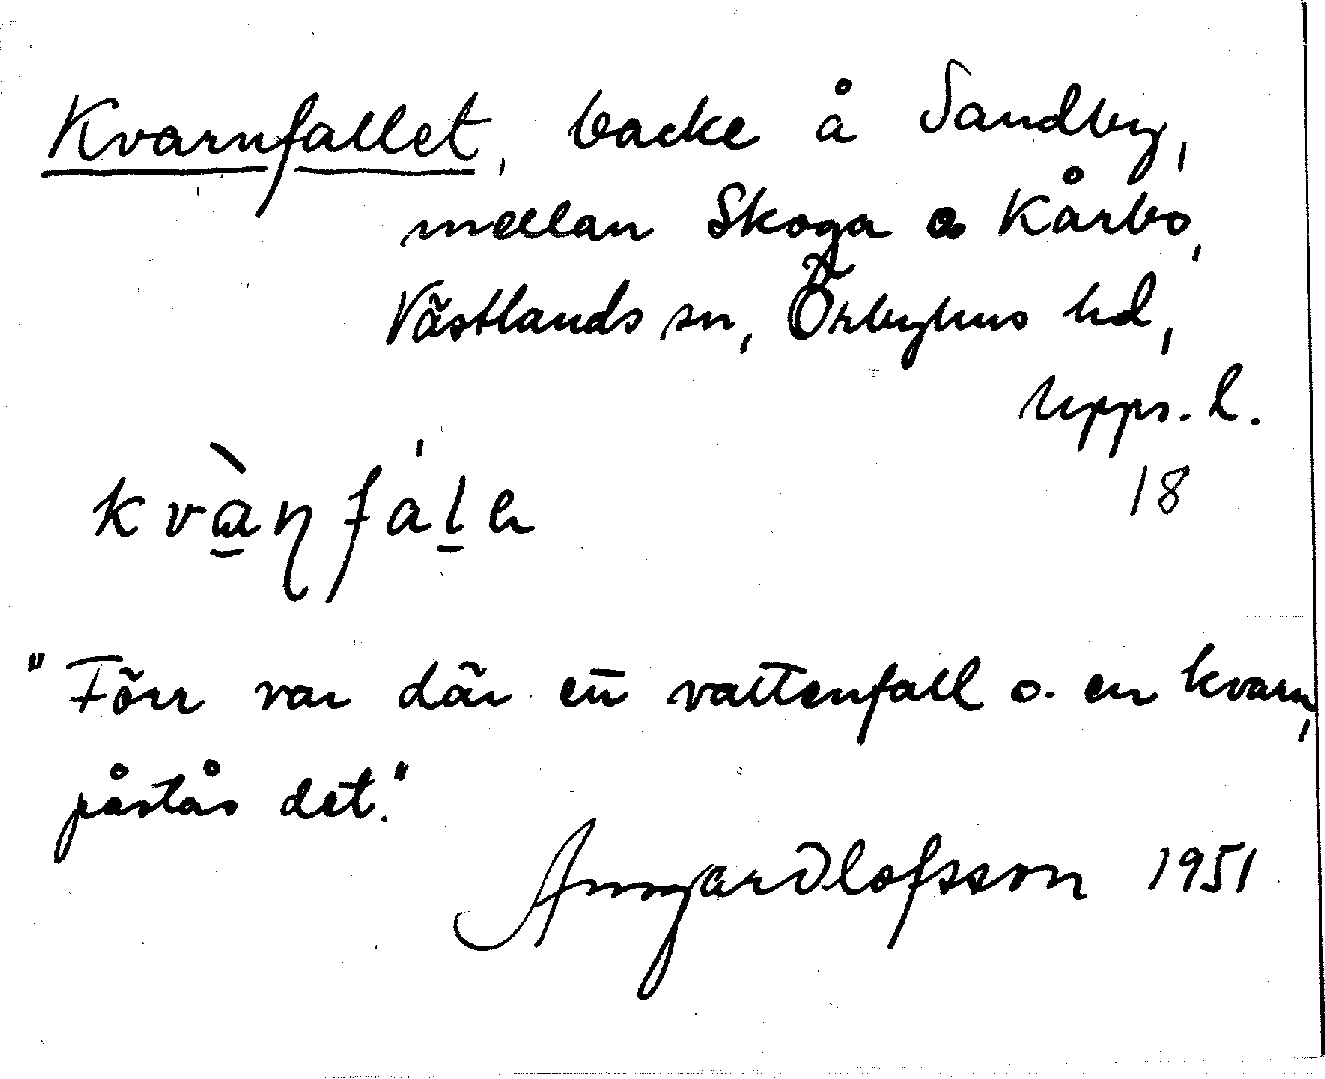 Kvarnfallet, backe å Sandby,
mellan Skoga o Kårbo,
Västlands sn, Örbyhus hd,
Upps. l.
18
"Förr var där ett vattenfall o. en kvarn,
påstås det."
Olofsson 1951